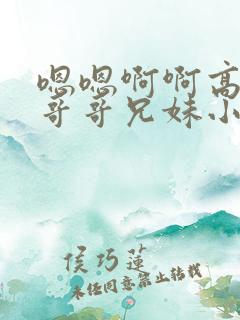 嗯嗯啊啊高
哥哥兄妹小
侯巧莲
未经同意禁止转载